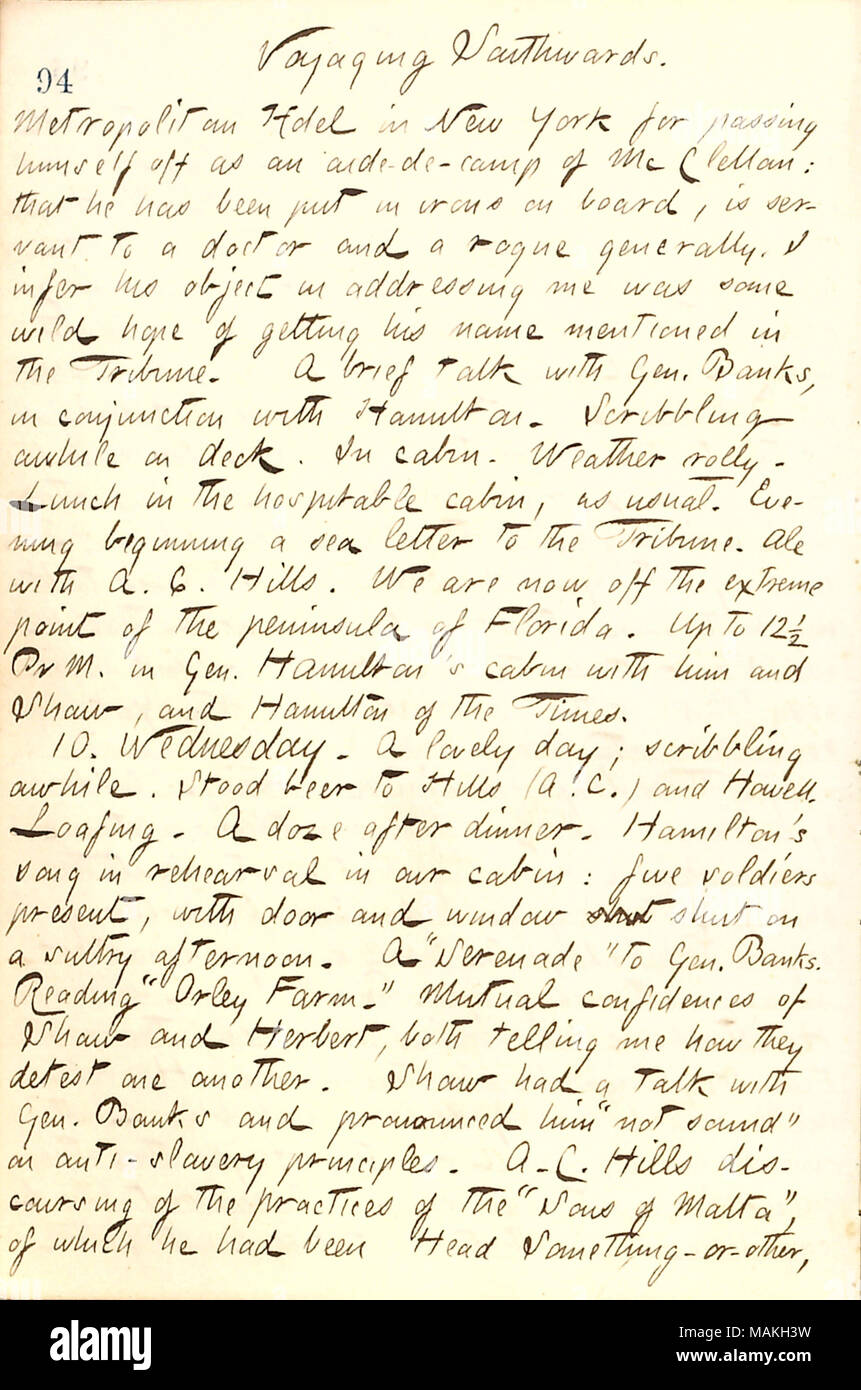 Voyaging Southwards.
94
Metropolitan Hotel in New York for passing
himself off as an aide-de-camp of Mc Clellan:
that he has been put in irons on board, is ser-
vant to a doctor and a rogue generally. I
infer his object in addressing me was some
wild hope of getting his name mentioned in
the Tribune. A brief talk with Gen. Banks,
in conjunction with Hamilton. Scribbling
awhile on deck. In cabin. Weather rolly.
Lunch in the hospitable cabin, as usual. Eve-
ning beginning a sea letter to the Tribune. Ale
with A. C. Hills. We are now off the extreme
point of the peninsula of Florida. Up to 12½
P. M. in Gen. Hamilton's cabin with him and
Shaw, and Hamilton of the Times.
10. Wednesday. A lovely day; scribbling
awhile. Stood beer to Hills (A. C.) and Howell.
Loafing. A doze after dinner. Hamilton's
song in rehearsal in our cabin: five soldiers
present, with door and window shut shut on
a sultry afternoon. A "Serenade" to Gen. Banks.
Reading "Orley Farm." Mutual confidences of
Shaw and Herbert, both telling me how they
detest one another. Shaw had a talk with
Gen. Banks and pronounced him "not sound"
on anti-slavery principles. A. C. Hills dis-
coursing of the practices of the "Sons of Malta",
of which he had been Head Something-or-other,
alamy
Image ID: MAKH3W
www.alamy.com